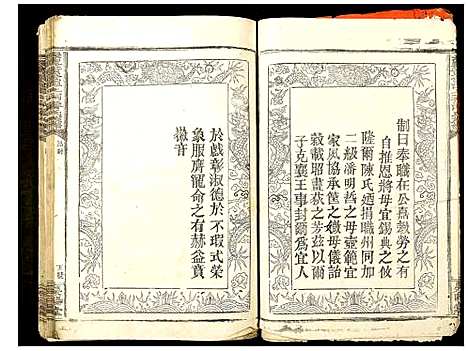 制曰奉職在公嘉敎勞之有
自推恩將母宜錫典之攸
隆爾陳氏迺捐職州同加
二級潘明哲之母壼範宜
家風協承筐之媺母儀詒
穀載昭畫荻之芳茲以爾
子克襄王事封爾爲宜人
於戲彰淑德於不瑕式榮
象服膺寵命之有赫益賁
徽音